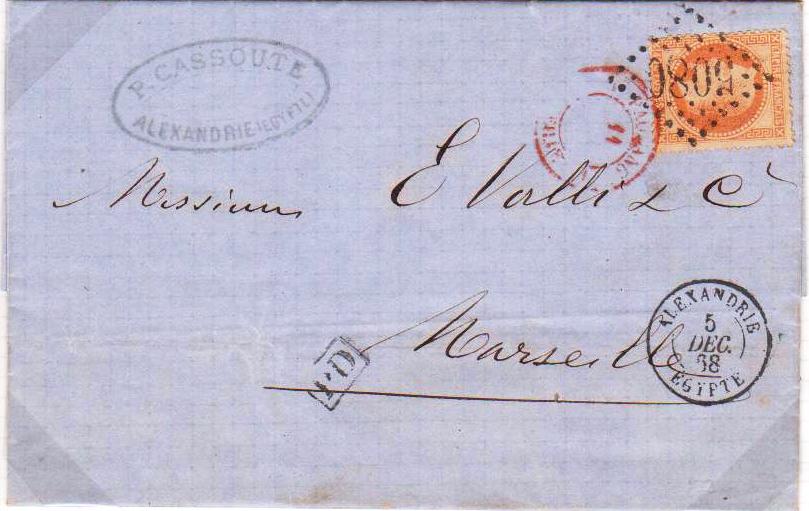 P. CASSOUTE
ALEXANDRIE (EGYPTE)
5080
11
Messieurs E Valli & Cº
Marseille
PD
ALEXANDRIE
5
DEC.
68
EGYPTE